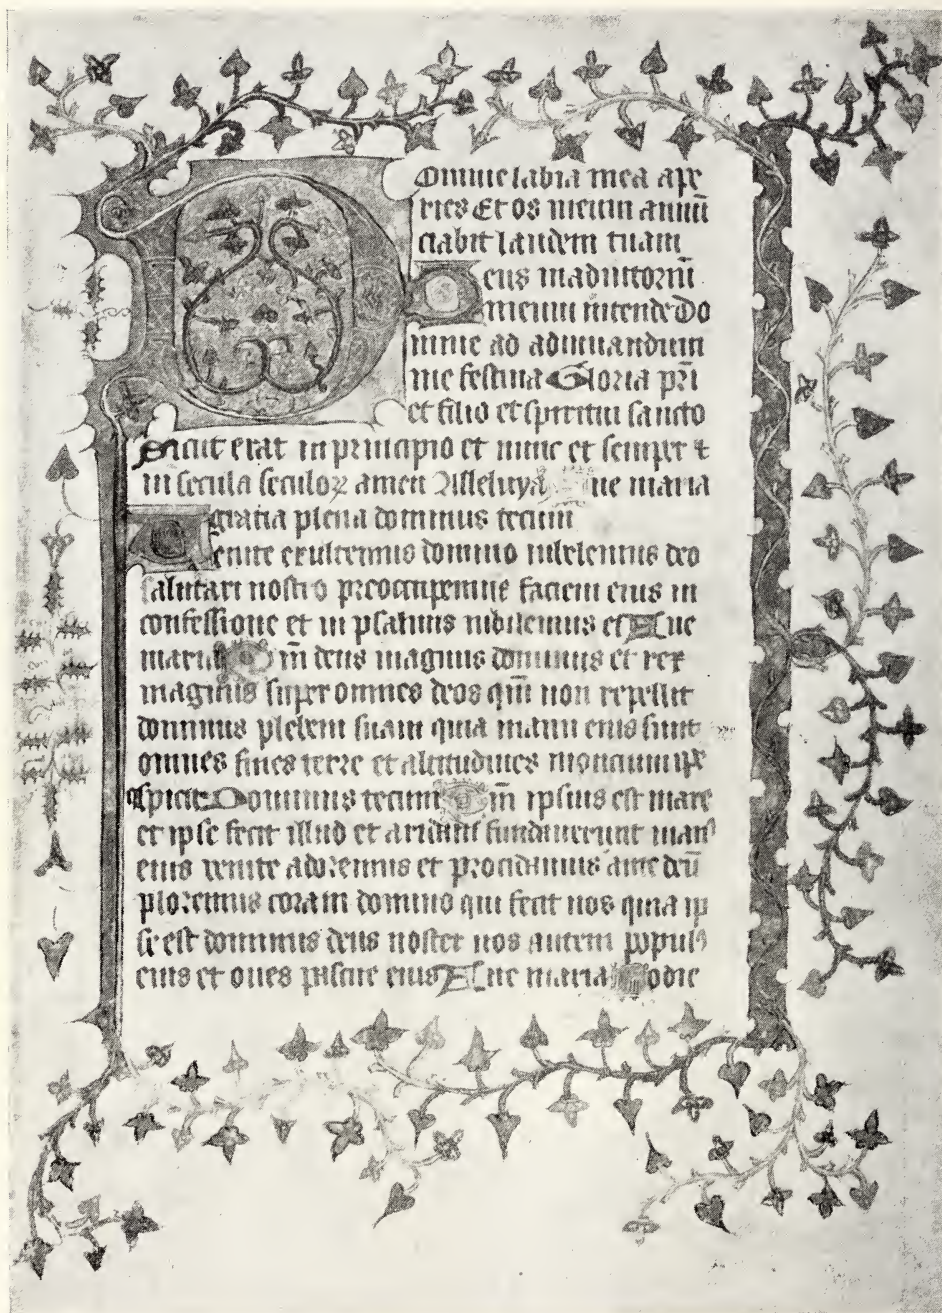 Domine labia mea ape
ries Et os meum annũ
ciabit laudem tuam
Deus in adiutoriũ
meum intende Do
mine ad adiuuandum
me festina Gloria pr̃i
et filio et spiritui sancto
Sicut erat in principio et nunc et semper ⁊
in secula seculoꝝ amen Alleluya Aue maria
gratia plena dominus tecum
Uenite exultemus domino iubilemus deo
salutari nostro preoccupemus faciem eius in
confessione et in psalmis iubilemus ei Aue
maria Qm̃ deus magnus dominus et rex
magnus super omnes deos qm̃ non repellit
dominus plebem suam quia in manu eius sunt
omnes fines terre et altitudines moncium ipe
aspicit Dominus tecum Qm̃ ipsius est mare
et ipse fecit illud et aridam fundauerunt man⁹
eius uenite adoremus et procidamus ante deũ
ploremus coram domino qui fecit nos quia ip
se est dominus deus noster nos autem popul⁹
eius et oues pascue eius Aue maria Hodie